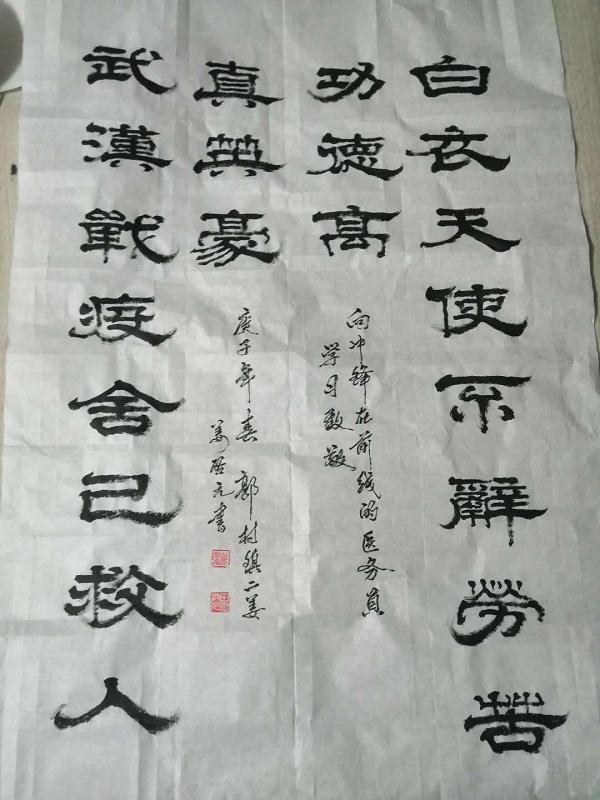 白衣天使不辭勞苦
功德高
向冲锋在前线的医务员
学习致敬
武漢戰疫舍己救人
真英豪
庚子年春 郭村镇二姜
姜啓元書